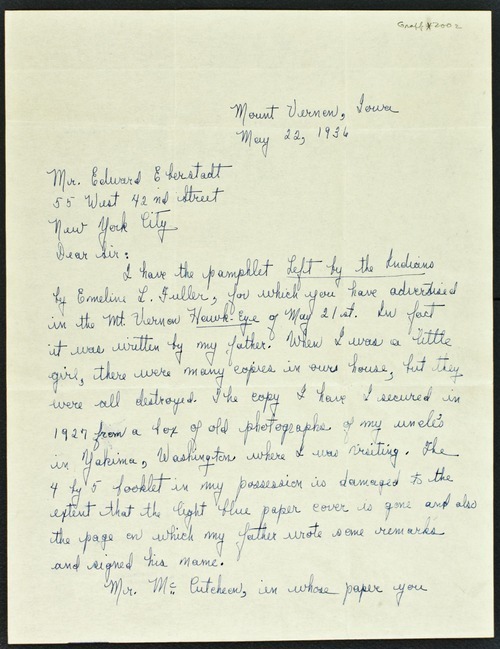 Graff 2002
Mount Vernon, Iowa
May 22, 1936
Mr. Edward Eberstadt
55 West 42 nd Street
New York City
Dear Sir:
I have the pamphlet Left by the Indians
by Emeline L. Fuller, for which you have advertised
in the Mt. Vernon Hawk-Eye of May 21st. In fact
it was written by my father. When I was a little
girl, there were many copies in our house, but they
were all destroyed. The copy I have I secured in
1927 from a box of old photographs of my uncle's
in Yakima, Washington where I was visiting. The
4 by 5 booklet in my possession is damaged to the
extent that the light blue paper cover is gone and also
the page on which my father wrote some remarks
and signed his name.
Mr. Mc Cutcheon, in whose paper you